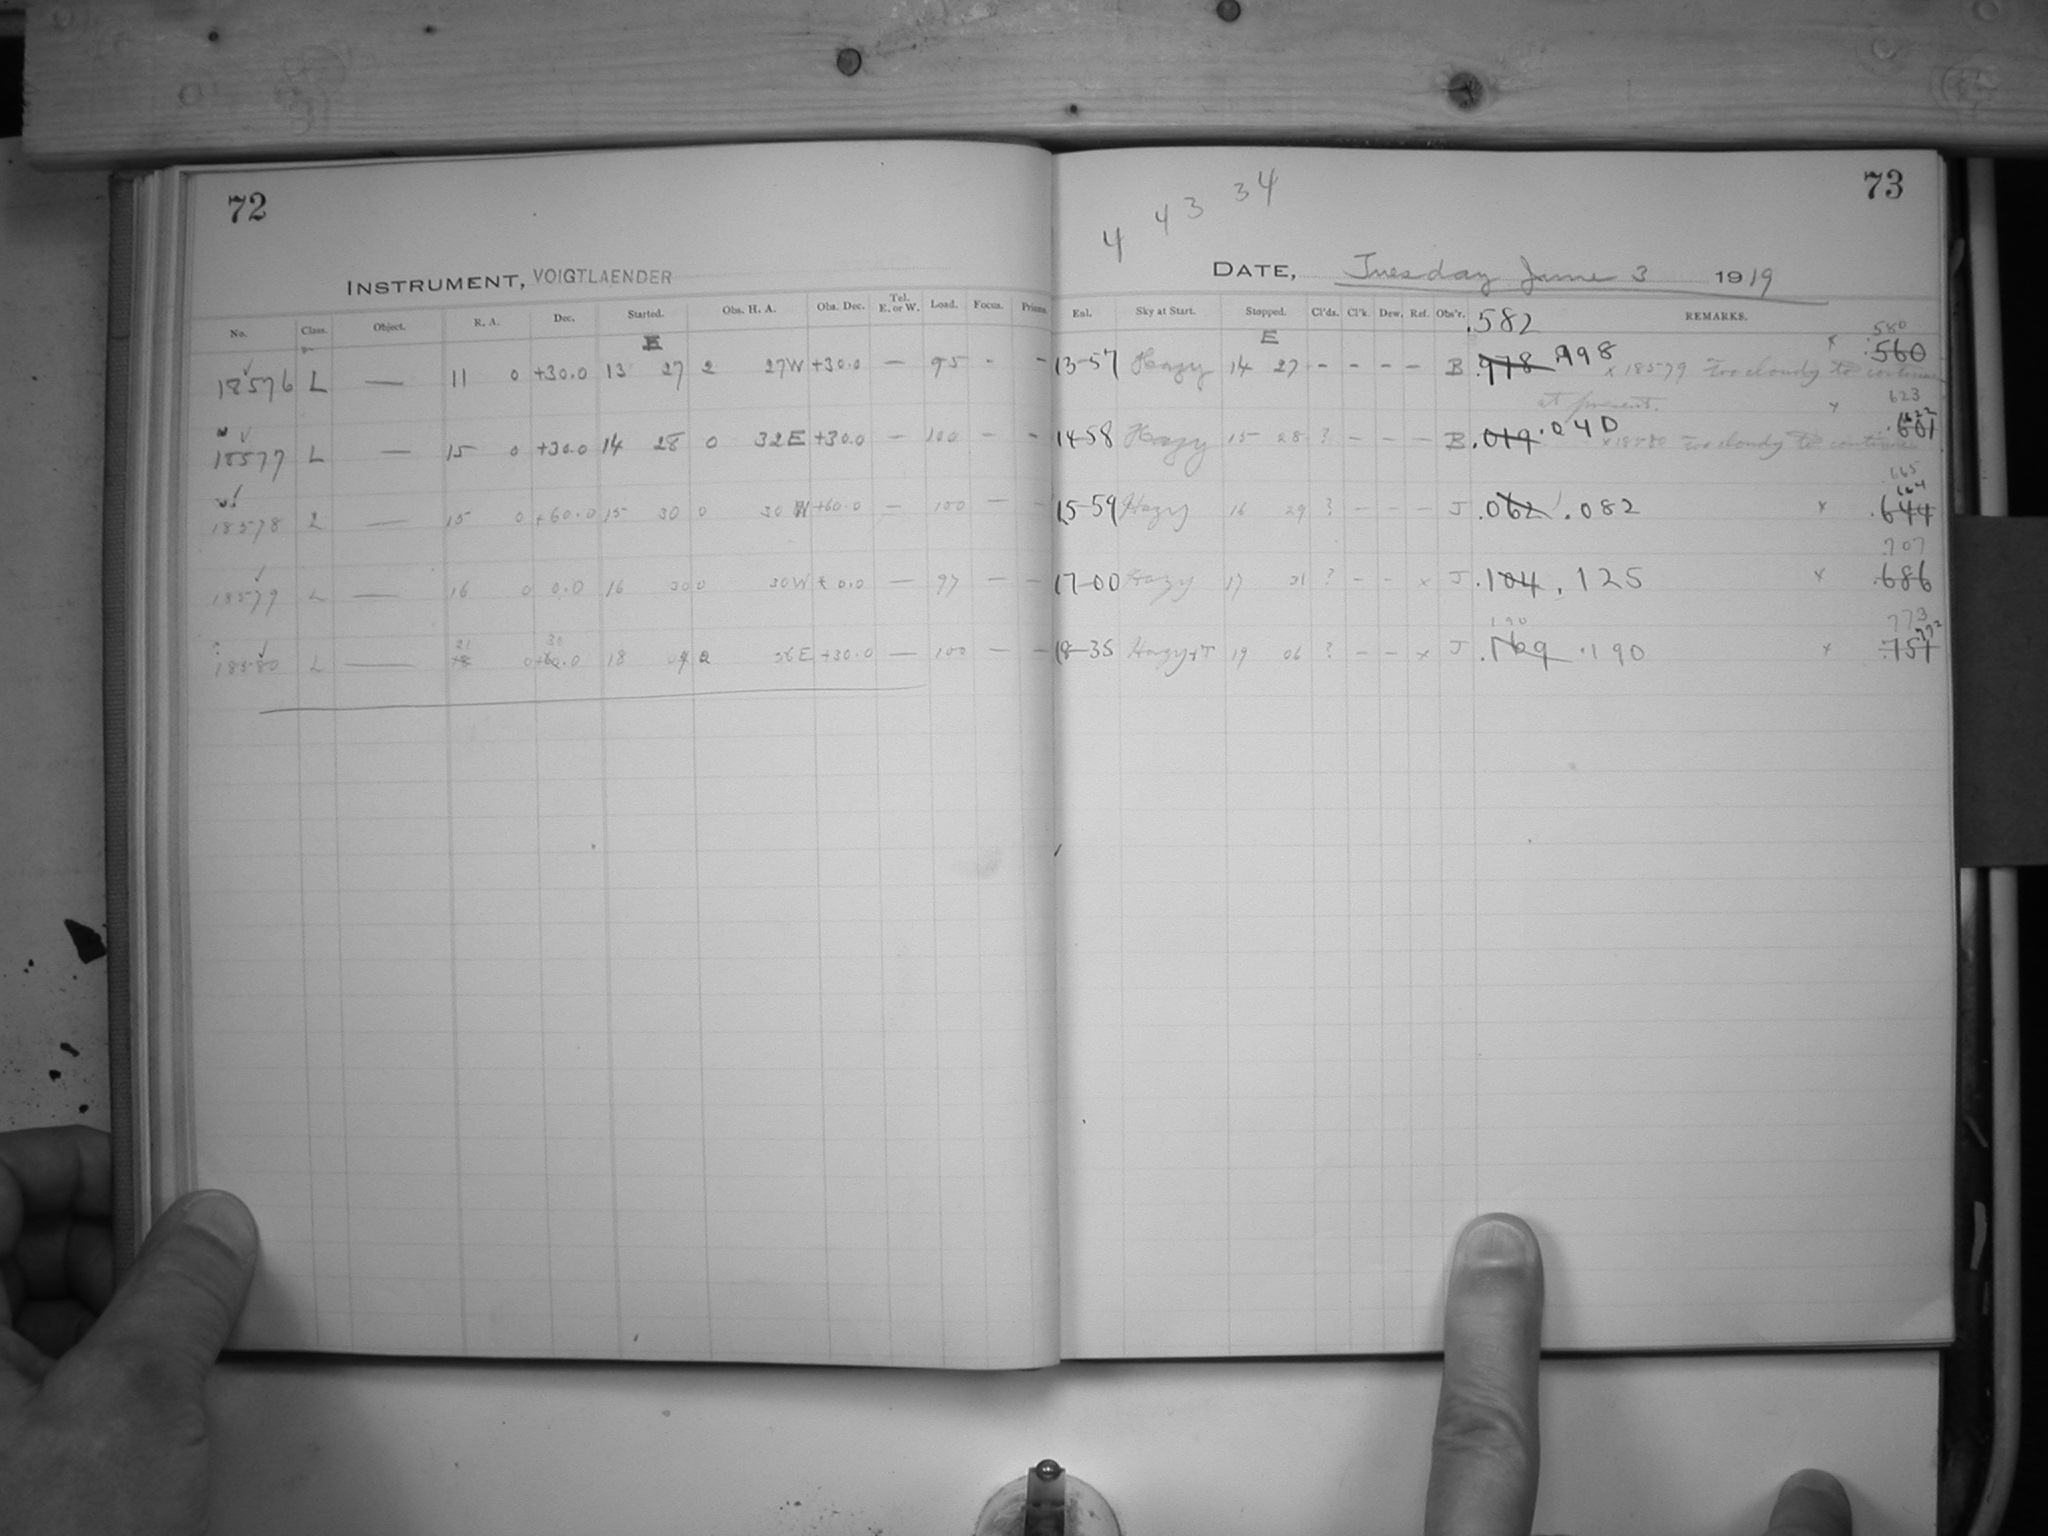 72
INSTRUMENT, VOIGTLAENDER
No. Class. Object. R. A. Dec. Started. Obs. H. A. Obs. Dec. Tel. E. or W. Load. Focus. Prisms.
E
18576 L — 11 0 +30.0 13 27 2 27W +30.0 — 95 - -
18577 L — 15 0 +30.0 14 28 0 32E +30.0 — 100 - -
18578 L — 15 0 +60.0 15 30 0 30 W +60.0 — 100 — -
18579 L — 16 0 0.0 16 30 0 30W 0.0 — 97 — —
21 30
18580 L — 18 0 +60.0 18 09 2 56E +30.0 — 100 — —
73
4 4 3 3 4
DATE, Tuesday June 3 1919
Exl. Sky at Start. Stopped. Cl'ds. Cl'k. Dew. Ref. Obs'r. .582 REMARKS.
E
580
13-57 Hazy 14 27 - - - - B .978 .998 x 18579 Too cloudy to continue x .560
at present.
623
14-58 Hazy 15 28 ? - - - B .019 .040 x 18580 Too cloudy to continue x 622 .601
665
664
15-59 Hazy 16 29 ? - - - J .062 .082 x .644
707
17-00 Hazy 17 31 ? - - x J .104 .125 x .686
190 773
772
18-35 Hazy+T 19 06 ? - - x J .169 .190 x .751